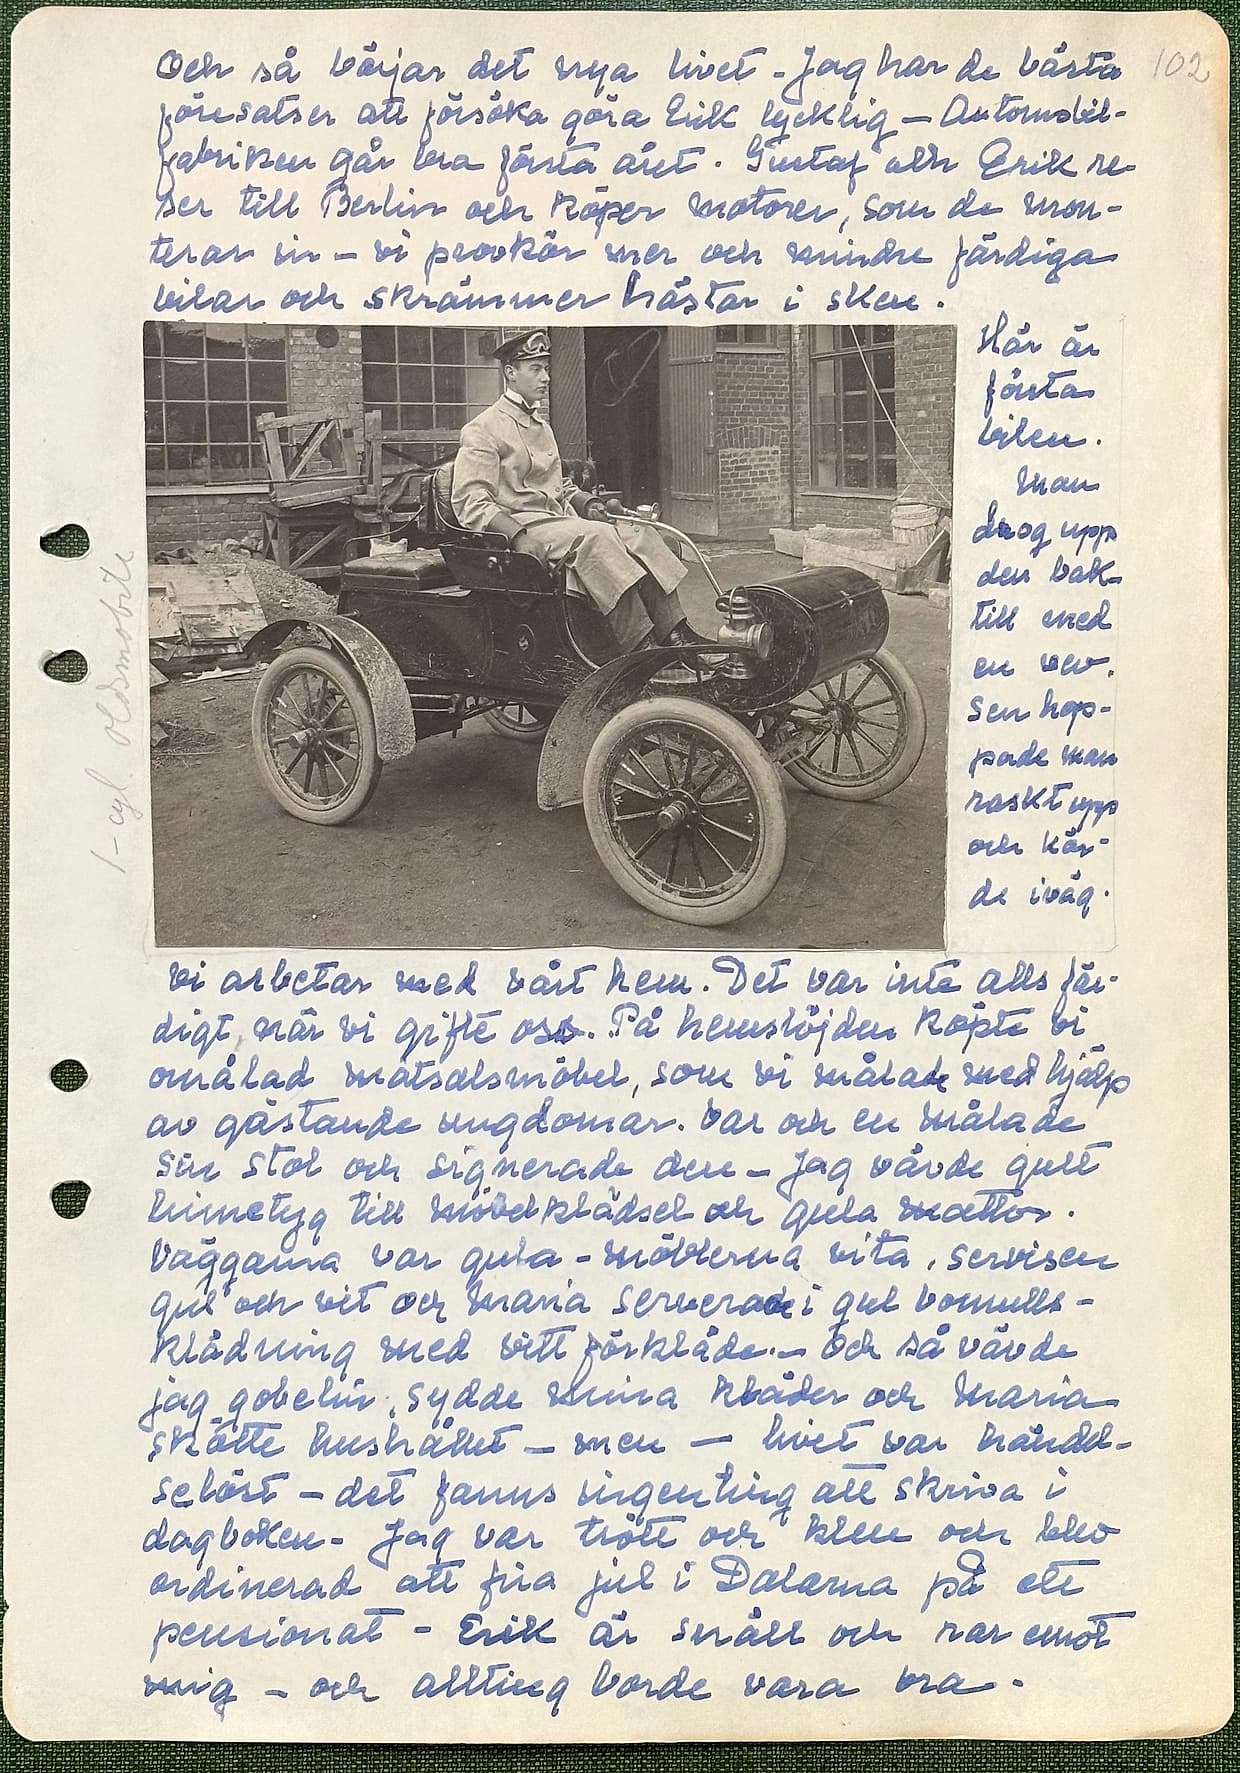 102
Och så börjar det nya livet - Jag har de bästa
föresatser att försöka göra Erik lycklig - Automobil-
fabriken går bra första året. Gustaf och Erik re-
ser till Berlin och köper motorer, som de mon-
terar in - vi provkör mer och mindre färdiga
bilar och skrämmer hästar i sken.
Här är
första
bilen.
Man
drog upp
den bak-
till med
en vev.
Sen hop-
pade man
raskt upp
och kör-
de iväg.
1-cyl. Oldsmobile
Vi arbetar med vårt hem. Det var inte alls fär-
digt, när vi gifte oss. På hemslöjden köpte vi
omålad matsalsmöbel, som vi målade med hjälp
av gästande ungdomar. Var och en målade
sin stol och signerade den - Jag vävde gult
linnetyg till möbelklädsel och gula mattor.
Väggarna var gula - möblerna vita, servisen
gul och vit och Maria serverade i gul bomulls-
klädning med vitt förkläde. - Och så vävde
jag gobelin, sydde mina kläder och Maria
skötte hushållet - men - livet var händel-
selöst - det fanns ingenting att skriva i
dagboken - Jag var trött och klen och blev
ordinerad att fira jul i Dalarna på ett
pensionat - Erik är snäll och rar emot
mig - och allting borde vara bra -.